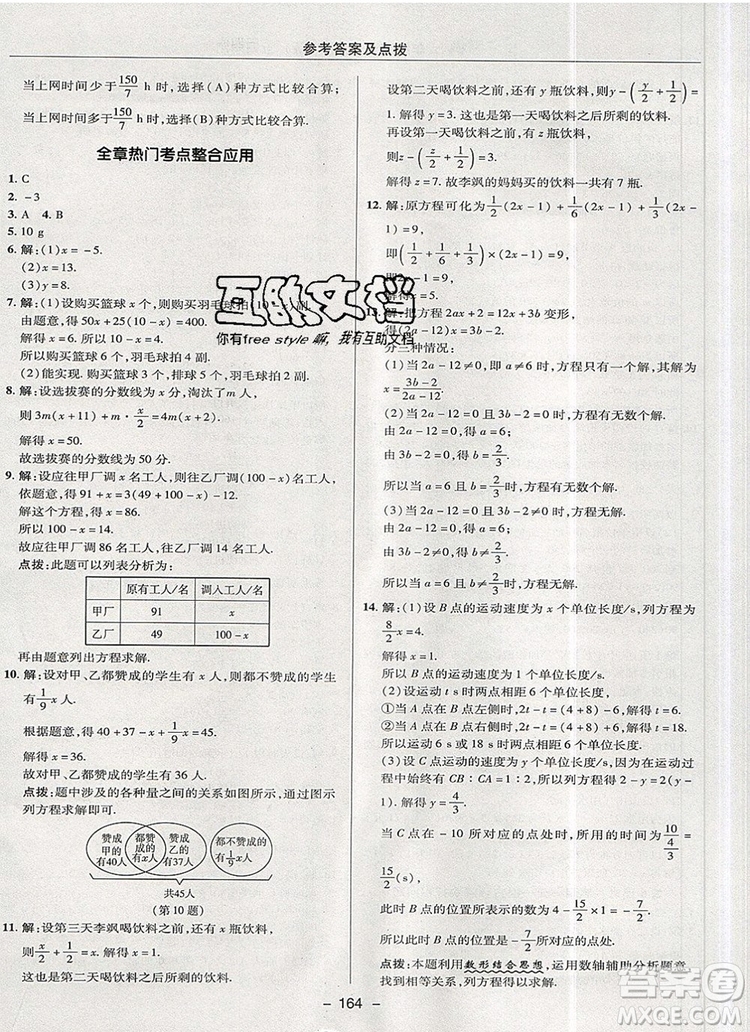 参考答案及点拨
当上网时间少于150/7 h时,选择(A)种方式比较合算;
当上网时间多于150/7 h时,选择(B)种方式比较合算.
全章热门考点整合应用
1. C
2. －3
3. A 4. B
5. 10 g
6. 解:(1)x＝－5.
(2)x＝13.
(3)y＝8.
7. 解:(1)设购买篮球x个,则购买羽毛球拍(10－x)副.
由题意,得50x＋25(10－x)＝400.
解得x＝6.
所以购买篮球6个,羽毛球拍4副.
(2)能购买篮球3个,排球5个,羽毛球拍2副.
8. 解:设选拔赛的分数线为x分,淘汰了m人,
则3m(x＋11)＋m·x/2＝4m(x＋2).
解得x＝50.
故选拔赛的分数线为50分.
9. 解:设应往甲厂调x名工人,往乙厂调(100－x)名工人,
依题意,得91＋x＝3(49＋100－x)－12.
解这个方程,得x＝86.
所以100－x＝14.
故应往甲厂调86名工人,往乙厂调14名工人.
点拨:此题可以列表分析为:
原有工人/名 调入工人/名
甲厂 91 x
乙厂 49 100－x
再由题意列出方程求解.
10. 解:设对甲、乙都赞成的学生有x人,则都不赞成的学生
有1/9x人.
根据题意,得40＋37－x＋1/9x＝45.
解得x＝36.
故对甲、乙都赞成的学生有36人.
点拨:题中涉及的各种量之间的关系如图所示,通过图示
列方程求解即可.
赞成甲的有40人 都赞成的有x人 赞成乙的有37人 都不赞成的有1/9x人
共45人
(第10题)
11. 解:设第三天李飒喝饮料之前,还有x瓶饮料,
则x/2＋1/2＝x.解得x＝1.
这也是第二天喝饮料之后所剩的饮料.
设第二天喝饮料之前,还有y瓶饮料,则y－(y/2＋1/2)＝
1.解得y＝3.这也是第一天喝饮料之后所剩的饮料.
再设第一天喝饮料之前,有z瓶饮料,
则z－(z/2＋1/2)＝3.
解得z＝7.故李飒的妈妈买的饮料一共有7瓶.
12. 解:原方程可化为1/2(2x－1)＋1/6(2x－1)＋1/3(2x－
1)＝9,
即(1/2＋1/6＋1/3)(2x－1)＝9,
即2x－1＝9.
解得x＝5.
13. 解:把方程2ax＋2＝12x＋3b变形,
分三种情况:
(1)当2a－12≠0,即a≠6时,方程有一个解,其解为
x＝3b－2/2a－12.
(2)当2a－12＝0且3b－2＝0时,方程有无数个解.
由2a－12＝0,得a＝6;
由3b－2＝0,得b＝2/3.
所以当a＝6且b＝2/3时,方程有无数个解.
(3)当2a－12＝0且3b－2≠0时,方程无解.
由2a－12＝0,得a＝6;
由3b－2≠0,得b≠2/3.
所以当a＝6且b≠2/3时,方程无解.
14. 解:(1)设B点的运动速度为x个单位长度/s,列方程为
8/2x＝4.
解得x＝1.
所以B点的运动速度为1个单位长度/s.
(2)设运动t s时两点相距6个单位长度,
①当A点在B点左侧时,2t－t＝(4＋8)－6,解得t＝6.
②当A点在B点右侧时,2t－t＝(4＋8)＋6,解得t＝18.
所以运动6 s或18 s时两点相距6个单位长度.
(3)设C点的运动速度为y个单位长度/s,因为在运动过
程中始终有CB∶CA＝1∶2,所以列方程得2－y＝2(y－
1).解得y＝4/3.
当C点在－10所对应的点处时,所用的时间为10/4/3＝
15/2(s).
此时B点的位置所表示的数为4－15/2×1＝－7/2.
所以此时B点的位置是－7/2所对应的点处.
点拨:本题利用数形结合思想,运用数轴辅助分析题意,
找到相等关系,列出方程.
－ 164 －
互助文档
你有free style嘛,我有互助文档
答案圈
MXQE.COM